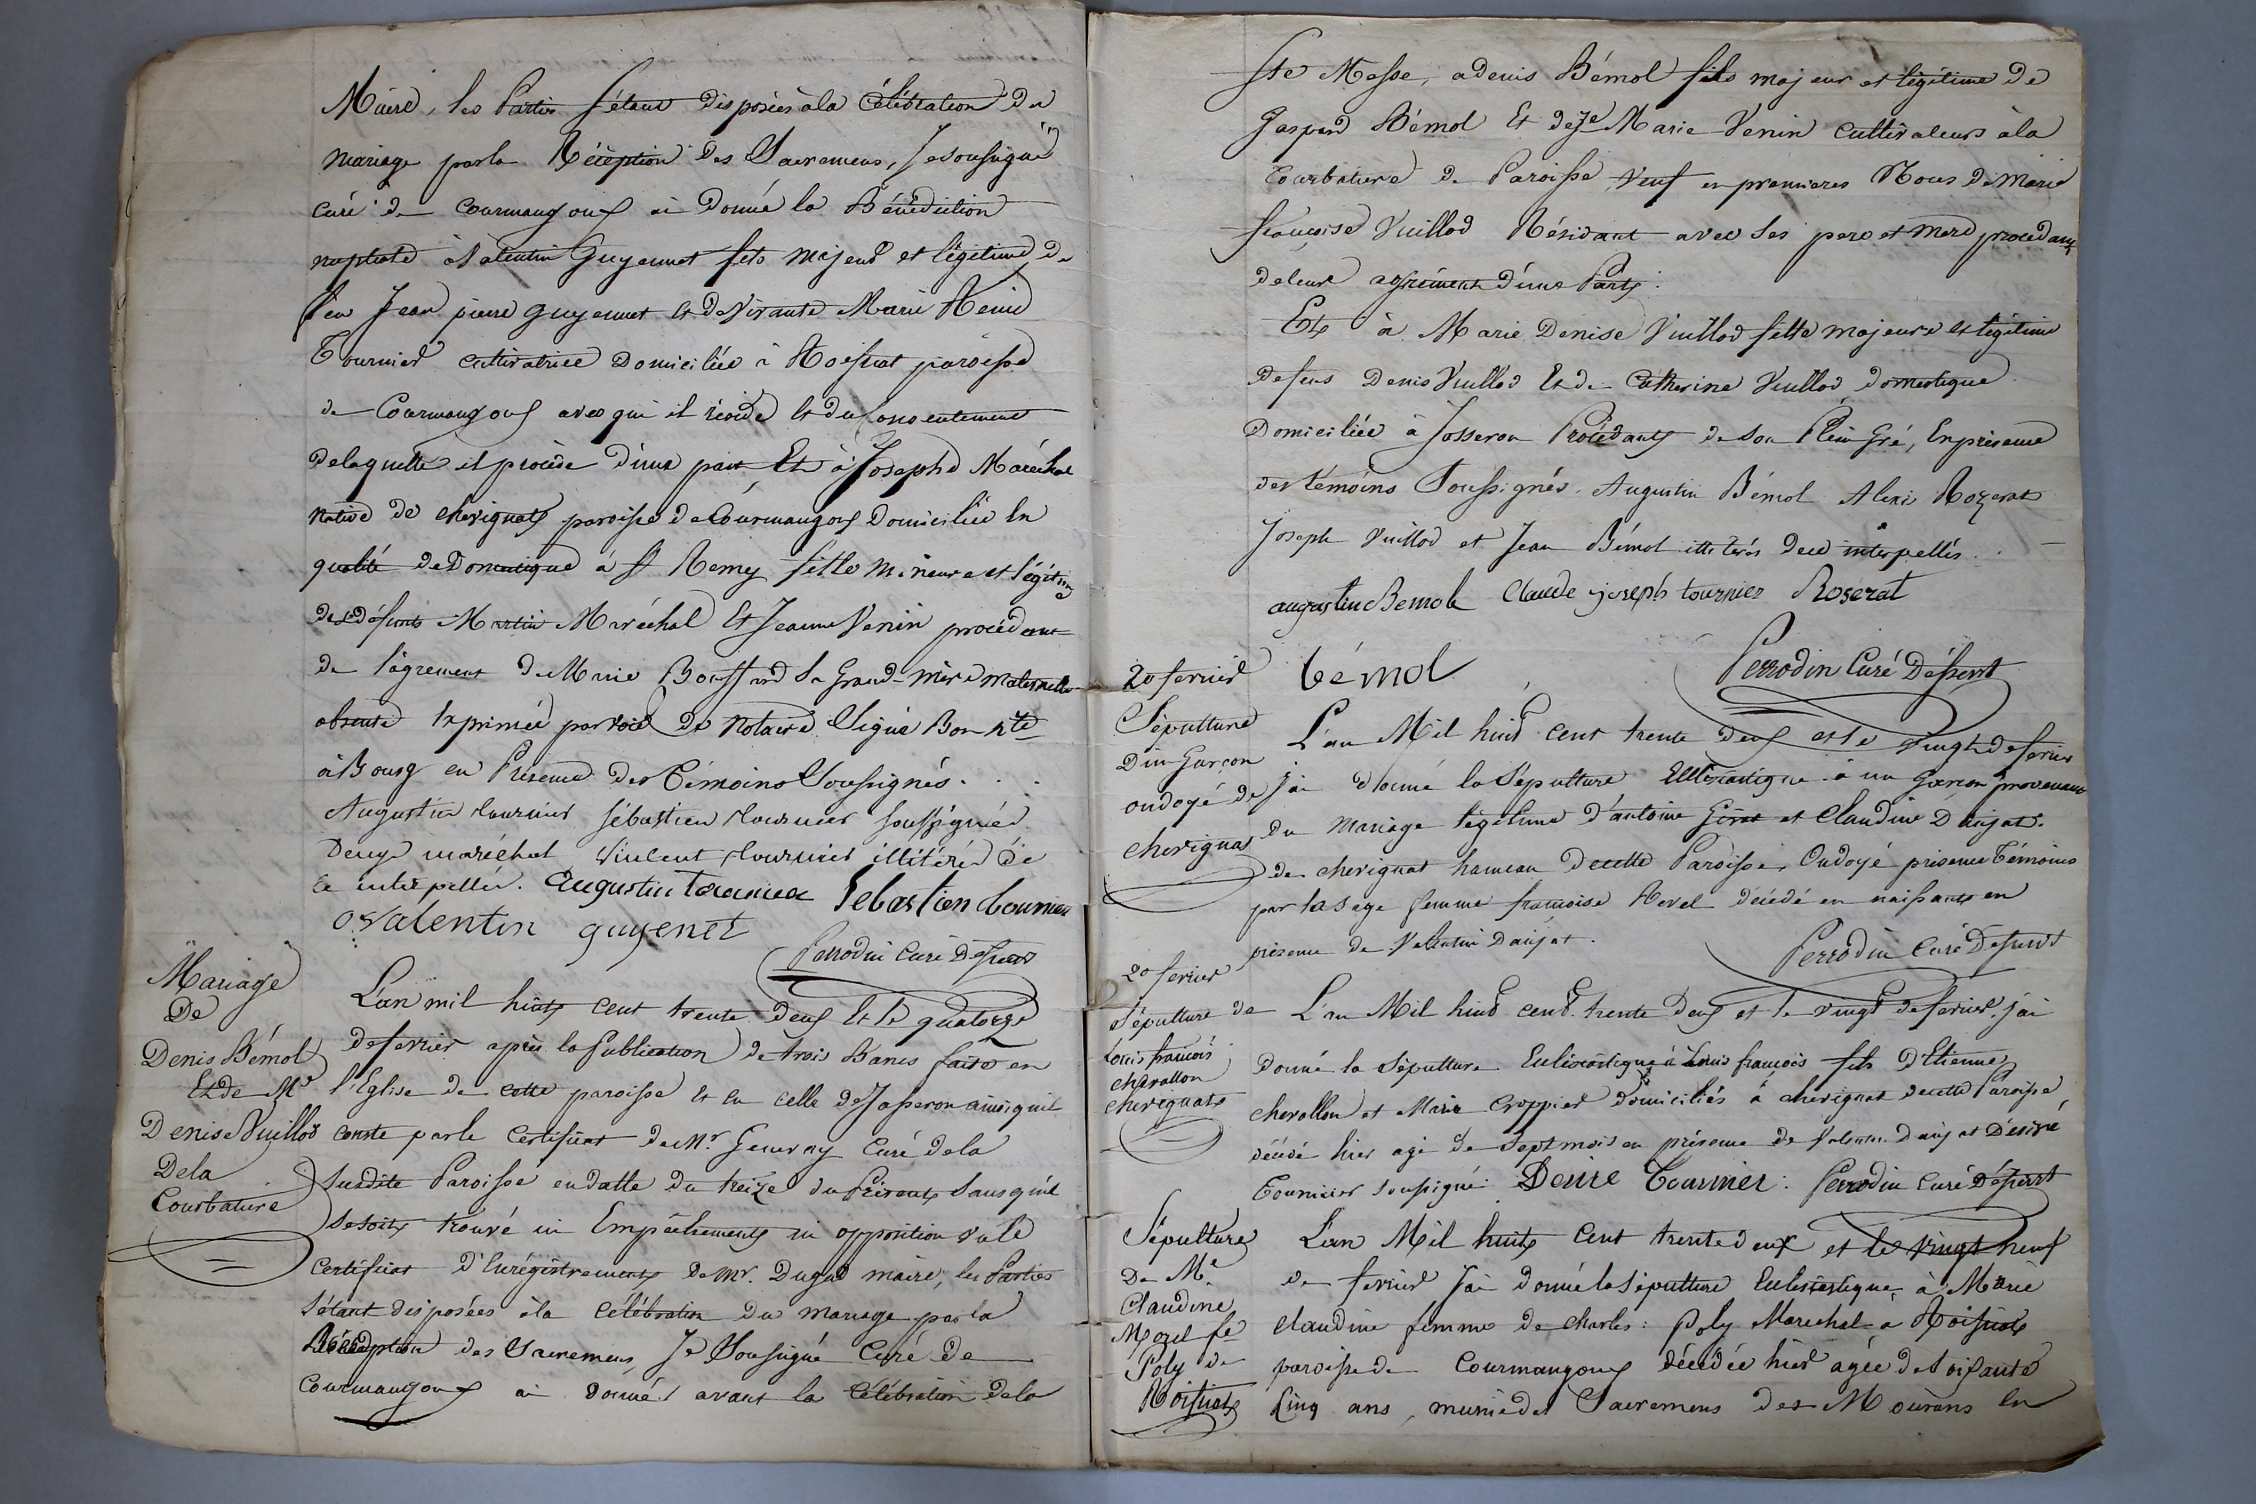 Maire, les Parties s'étant disposées à la Célébration du
mariage par la Réception des Sacremens, Je soussigné
curé de Courmangoux ai Donné la Bénédiction
nuptiale à Valentin Guyennet fils majeur et légitime de
feu Jean pierre guyennet et de vivante Marie Denise
Tournier cultivatrice Domiciliée à Roissiat paroisse
de Courmangoux avec qui il réside et du Consentement
de laquelle il procède d'une part Et à Josephe Maréchal
native de chevignat paroisse de Courmangoux Domiciliée en
qualité de Domestique à St Remy fille mineure et légitime
des défunts Martin Maréchal Et Jeanne Venin procédant
de l'agrement de Marie Bouffard Sa Grand-mère maternelle
absente Exprimée par voie de Notaire Signé Bon
à Bourg en Présence des Témoins Soussignés.
Augustin tournier sébastien tournier soussignés
Denys maréchal Vincent tournier illitérés de
ce interpellés. Augustin Tournier Sebastien tournier
Valentin guyenet
Perrodin Curé Desservt
Mariage
De
Denis Bémol
Et de Me
Denise Vuillod
De la
Courbature
L'an mil huit cent trente deux Et le quatorze
de fevrier après la Publication de trois Bancs faite en
l'Eglise de cette paroisse Et en celle de Jasseron ainsi qu'il
conste par le Certificat de Mr. Genevay Curé de la
Susdite Paroisse en datte du treize du Présent, Sans qu'il
se soit trouvé ni Empêchements ni opposition vu le
Certificat d'Enrégistrement de Mr. Dugad maire, les Parties
s'étant disposées à la Célébration du mariage par la
Réception des Sacremens, Je Soussigné Curé de
Courmangoux ai donné avant la Célébration de la
Ste Messe, a denis Bémol fils majeur et légitime de
Gaspard Bémol Et de Marie Venin cultivateurs à la
Courbature de Paroisse, Veuf en premieres Noces de Marie
françoise Vuillod Résidant avec ses pere et mere procédant
de leur agrément d'une Part.
Et à Marie Denise Vuillod fille majeure et légitime
de feus Denis Vuillod Et de Catherine Vuillod domestique
Domiciliée à Josseron Procédant de son Plein Gré, En présence
des témoins Soussignés. Augustin Bémol Alexi Rozerat
Joseph Vuillod et Jean Bémol illitérés de ce interpellés.
augustin Bemol Claude joseph tournier Roserat
bémol
Perrodin Curé Desservt
20 fevrier
Sépulture
D'un Garçon
ondoyé de
chevignat
L'an Mil huit cent trente deux et le vingt de fevrier
J'ai donné la Sépulture Ecclésiastique à un Garçon provenant
du Mariage légitime d'antoine et Claudine Danjat.
de chevignat hameau de cette Paroisse, Ondoyé présence Témoins
par la sage femme françoise Revel décédé en naissant en
présence de Valentin Danjat.
Perrodin Curé Desservt
20 fevrier
Sépulture de
Louis françois
chevallon
chevignat
L'an Mil huit cent trente deux et le vingt de fevrier, j'ai
donné la Sépulture Ecclésiastique à Louis françois fils d'Etienne
chevallon et Marie Croppier domiciliés à chevignat de cette Paroisse
décédé hier agé de sept mois en présence de Valentin Danjat Desiré
Tournier soussigné. Desire Tournier. Perrodin Curé Desservt
Sépulture
De Me
Claudine
Morel fe
Poly de
Roissiat
L'an Mil huit Cent trente deux et le vingt neuf
de fevrier J'ai donné la Sépulture Ecclesiastique à Marie
claudine femme de charles Poly Marechal à Roissiat
paroisse de Courmangoux décédée hier agée de soixante
Cinq ans, munie des Sacremens des Mourans En